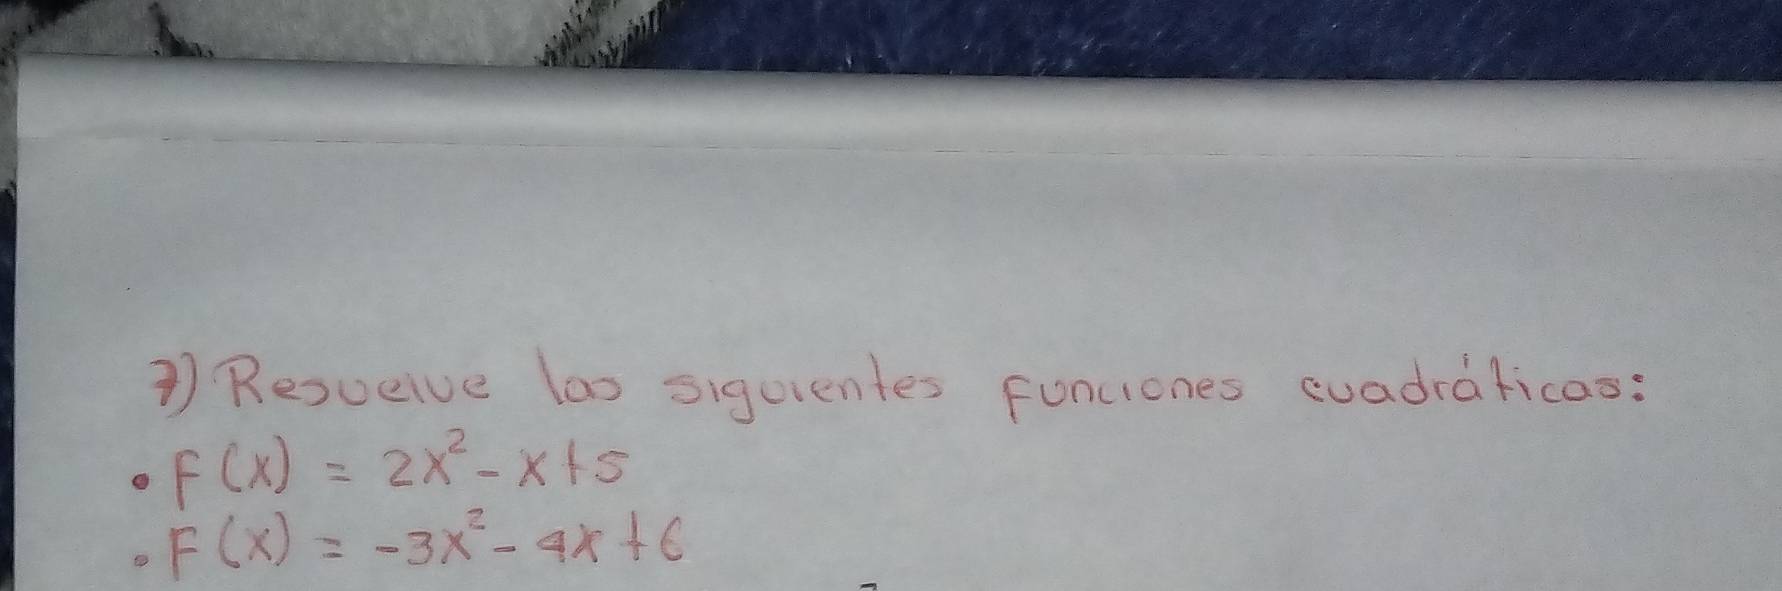 7) Resuelve las siguientes funciones cuadráticas:
• F(x) = 2x² - x + 5
• F(x) = -3x² - 4x + 6